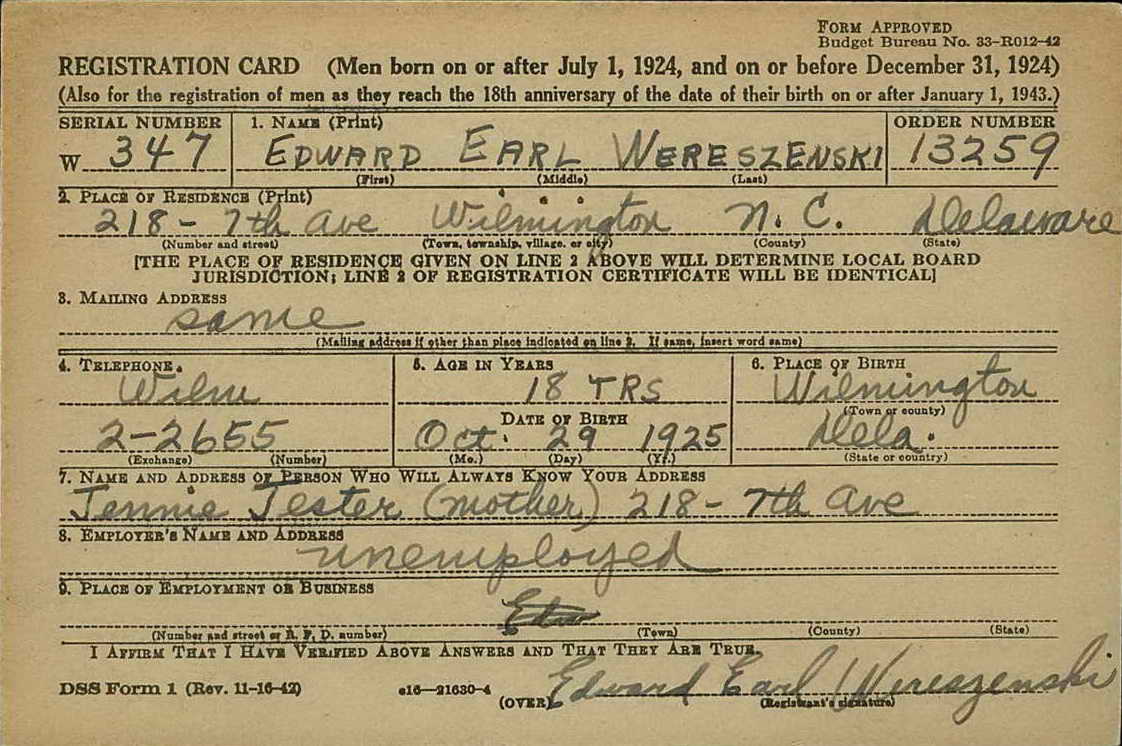 FORM APPROVED
Budget Bureau No. 33-R012-42
REGISTRATION CARD (Men born on or after July 1, 1924, and on or before December 31, 1924)
(Also for the registration of men as they reach the 18th anniversary of the date of their birth on or after January 1, 1943.)
SERIAL NUMBER 1. NAME (Print) ORDER NUMBER
W 347 EDWARD EARL WERESZENSKI 13259
(First) (Middle) (Last)
2. PLACE OF RESIDENCE (Print)
218 - 7th Ave Wilmington N. C. Delaware
(Number and street) (Town, township, village, or city) (County) (State)
[THE PLACE OF RESIDENCE GIVEN ON LINE 2 ABOVE WILL DETERMINE LOCAL BOARD
JURISDICTION; LINE 2 OF REGISTRATION CERTIFICATE WILL BE IDENTICAL]
3. MAILING ADDRESS
same
(Mailing address if other than place indicated on line 2. If same, insert word same)
4. TELEPHONE 5. AGE IN YEARS 6. PLACE OF BIRTH
Wilm 18 YRS Wilmington
DATE OF BIRTH (Town or county)
2-2655 Oct. 29 1925 Dela.
(Exchange) (Number) (Mo.) (Day) (Yr.) (State or country)
7. NAME AND ADDRESS OF PERSON WHO WILL ALWAYS KNOW YOUR ADDRESS
Jennie Jester (mother) 218 - 7th Ave
8. EMPLOYER'S NAME AND ADDRESS
unemployed
9. PLACE OF EMPLOYMENT OR BUSINESS
(Number and street or R. F. D. number) (Town) (County) (State)
I AFFIRM THAT I HAVE VERIFIED ABOVE ANSWERS AND THAT THEY ARE TRUE.
DSS Form 1 (Rev. 11-16-42) c16-21630-4 (OVER) Edward Earl Wereszenski
(Registrant's signature)